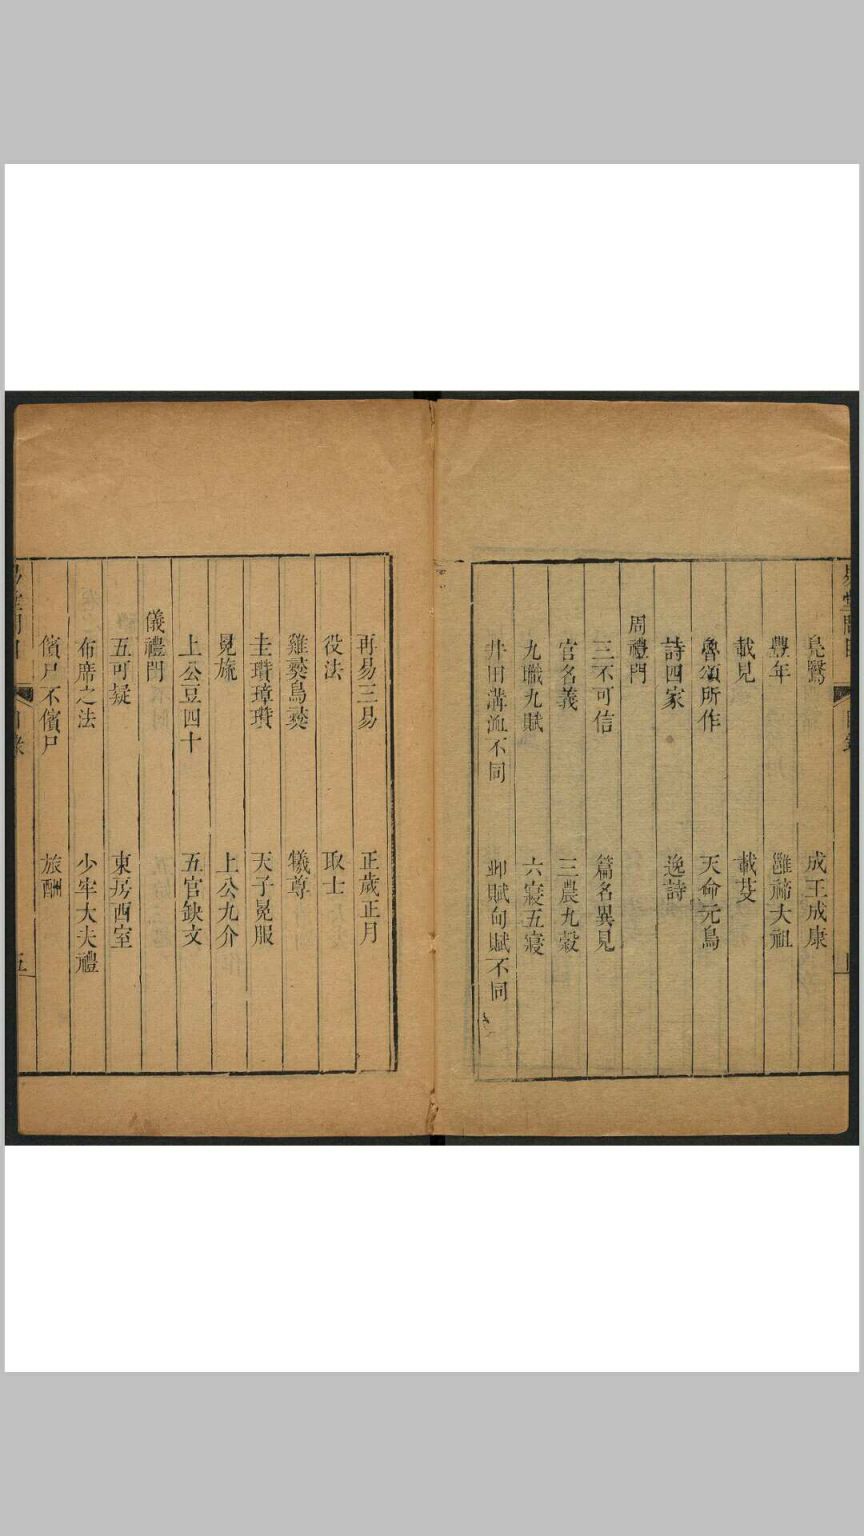 鳧鷖　成王成康
豐年　雝禘大祖
載見　載芟
魯頌所作　天命元鳥
詩四家　逸詩
周禮門
三不可信　篇名異見
官名義　三農九穀
九職九賦　六寢五寢
井田溝洫不同　邱賦甸賦不同
再易三易　正歲正月
役法　取士
雞彞鳥彞　犧尊
圭瓚璋瓚　天子冕服
冕旒　上公九介
上公豆四十　五官鈌文
儀禮門
五可疑　東房西室
布席之法　少牢大夫禮
儐尸不儐尸　旅酬